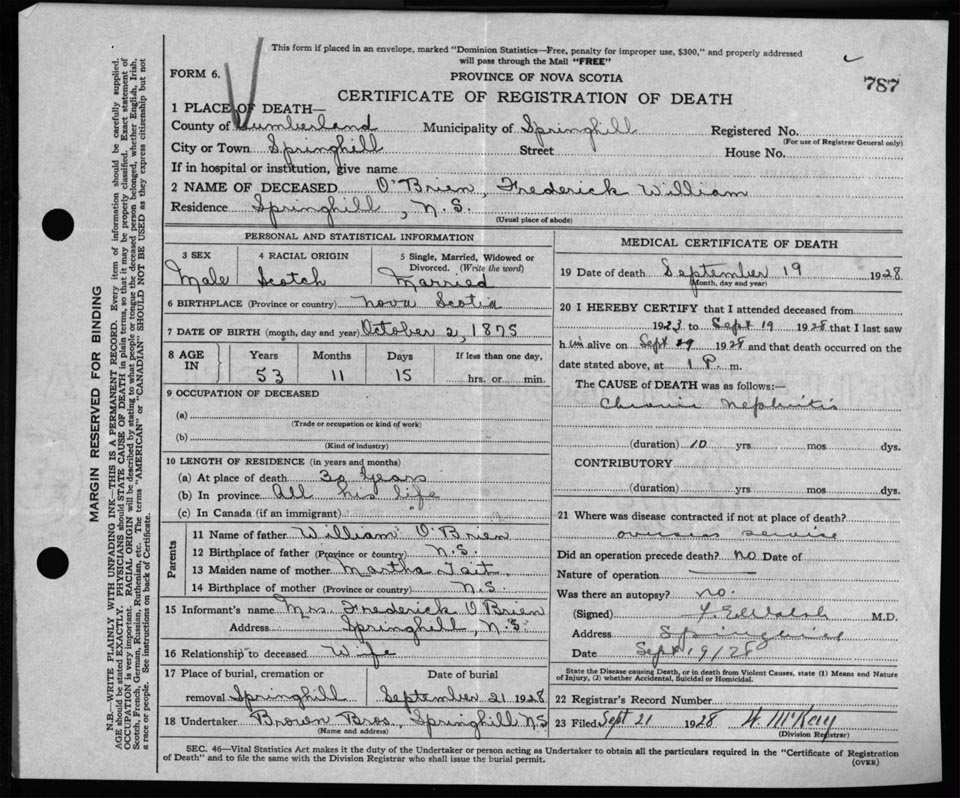 This form if placed in an envelope, marked "Dominion Statistics—Free, penalty for improper use, $300," and properly addressed
will pass through the Mail "FREE"
FORM 6.
PROVINCE OF NOVA SCOTIA
787
CERTIFICATE OF REGISTRATION OF DEATH
1 PLACE OF DEATH—
County of Cumberland Municipality of Springhill Registered No.
(For use of Registrar General only)
City or Town Springhill Street House No.
If in hospital or institution, give name
2 NAME OF DECEASED O'Brien, Frederick William
Residence Springhill, N.S.
(Usual place of abode)
PERSONAL AND STATISTICAL INFORMATION
3 SEX 4 RACIAL ORIGIN 5 Single, Married, Widowed or
Divorced. (Write the word)
Male Scotch Married
6 BIRTHPLACE (Province or country) Nova Scotia
7 DATE OF BIRTH (month, day and year) October 2, 1875
8 AGE IN Years Months Days If less than one day,
53 11 15 hrs. or min.
9 OCCUPATION OF DECEASED
(a)
(Trade or occupation or kind of work)
(b)
(Kind of industry)
10 LENGTH OF RESIDENCE (in years and months)
(a) At place of death 30 Years
(b) In province All his life
(c) In Canada (if an immigrant)
Parents
11 Name of father William O'Brien
12 Birthplace of father (Province or country) N.S.
13 Maiden name of mother Martha Tait
14 Birthplace of mother (Province or country) N.S.
15 Informant's name Mrs. Frederick O'Brien
Address Springhill, N.S.
16 Relationship to deceased Wife
17 Place of burial, cremation or Date of burial
removal Springhill September 21 1928
18 Undertaker Brown Bros., Springhill N.S
(Name and address)
MEDICAL CERTIFICATE OF DEATH
19 Date of death September 19 1928
(Month, day and year)
20 I HEREBY CERTIFY that I attended deceased from
1923 to Sept 19 1928 that I last saw
him alive on Sept 19 1928 and that death occurred on the
date stated above, at 1 P. m.
The CAUSE of DEATH was as follows:—
Chronic Nephritis
(duration) 10 yrs mos dys.
CONTRIBUTORY
(duration) yrs mos dys.
21 Where was disease contracted if not at place of death?
overseas service
Did an operation precede death? No Date of
Nature of operation
Was there an autopsy? no.
(Signed) Walsh M.D.
Address Springhill
Date Sept 19/28
State the Disease causing Death, or in death from Violent Causes, state (1) Means and Nature
of Injury, (2) whether Accidental, Suicidal or Homicidal.
22 Registrar's Record Number
23 Filed Sept 21 1928 W. McKay
(Division Registrar)
SEC. 46—Vital Statistics Act makes it the duty of the Undertaker or person acting as Undertaker to obtain all the particulars required in the "Certificate of Registration
of Death" and to file the same with the Division Registrar who shall issue the burial permit.
(OVER)
MARGIN RESERVED FOR BINDING
N.B.—WRITE PLAINLY WITH UNFADING INK—THIS IS A PERMANENT RECORD. Every item of information should be carefully supplied.
AGE should be stated EXACTLY. PHYSICIANS should STATE CAUSE OF DEATH in plain terms, so that it may be properly classified. Exact statement of
OCCUPATION is very important. RACIAL ORIGIN will be described by stating to what people or tongue the deceased person belonged, whether English, Irish,
Scotch, French, German, Russian, Ruthenian, etc. The terms "AMERICAN" or "CANADIAN" SHOULD NOT BE USED as they express citizenship but not
a race or people. See instructions on back of Certificate.